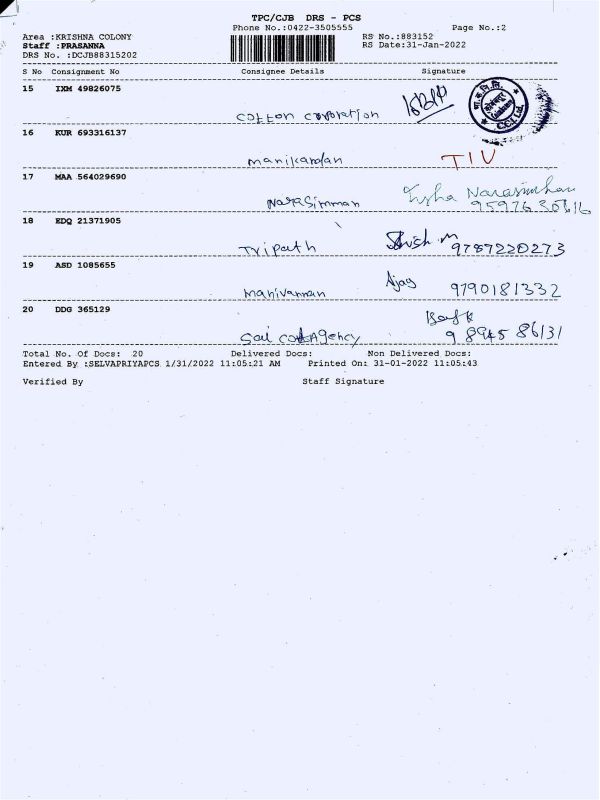 TPC/CJB DRS - PCS
Phone No.:0422-3505555
Page No.:2
Area :KRISHNA COLONY
RS No.:883152
Staff :PRASANNA
RS Date:31-Jan-2022
DRS No. :DCJB88315202
S No Consignment No Consignee Details Signature
15 IXM 49826075
cotton corporation
16 KUR 693316137
manikandan TIV
17 MAA 564029690
Narasimman Narasimhan
18 EDQ 21371905
Tripath 9787220273
19 ASD 1085655
Manivannan Ajay 9790181332
20 DDG 365129
Sai Agency 9 8945 86131
Total No. Of Docs: 20 Delivered Docs: Non Delivered Docs:
Entered By :SELVAPRIYAPCS 1/31/2022 11:05:21 AM Printed On: 31-01-2022 11:05:43
Verified By Staff Signature